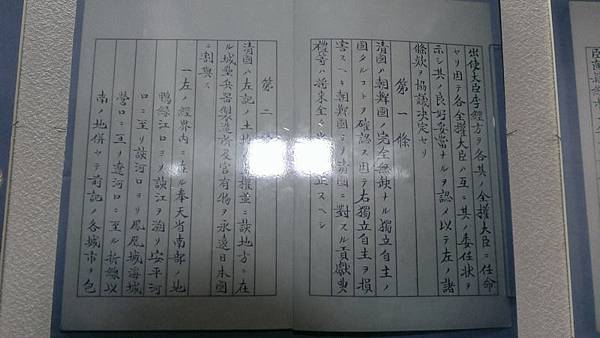 出使大臣李經方ヲ各其ノ全權大臣ニ任命
セリ因テ各全權大臣ハ互ニ其ノ委任狀ヲ
示シ其ノ良好妥當ナルヲ認メ以テ左ノ諸
條欵ヲ協議決定セリ
第一條
清國ハ朝鮮國ノ完全無缺ナル獨立自主ノ
國タルコトヲ確認ス因テ右獨立自主ヲ損
害スヘキ朝鮮國ヨリ清國ニ對スル貢獻典
禮等ハ將來全 止スヘシ
第二
清國ハ左記ノ土地 權並ニ該地方ニ在
ル城壘兵器製造所及官有物ヲ永遠日本國
ニ割與ス
一左ノ經界内ニ在ル奉天省南部ノ地
鴨緑江口ヨリ該江ヲ溯リ安平河
口ニ至リ該河口ヨリ鳳凰城海城
營口ニ亘リ遼河口ニ至ル折線以
南ノ地併セテ前記ノ各城市ヲ包